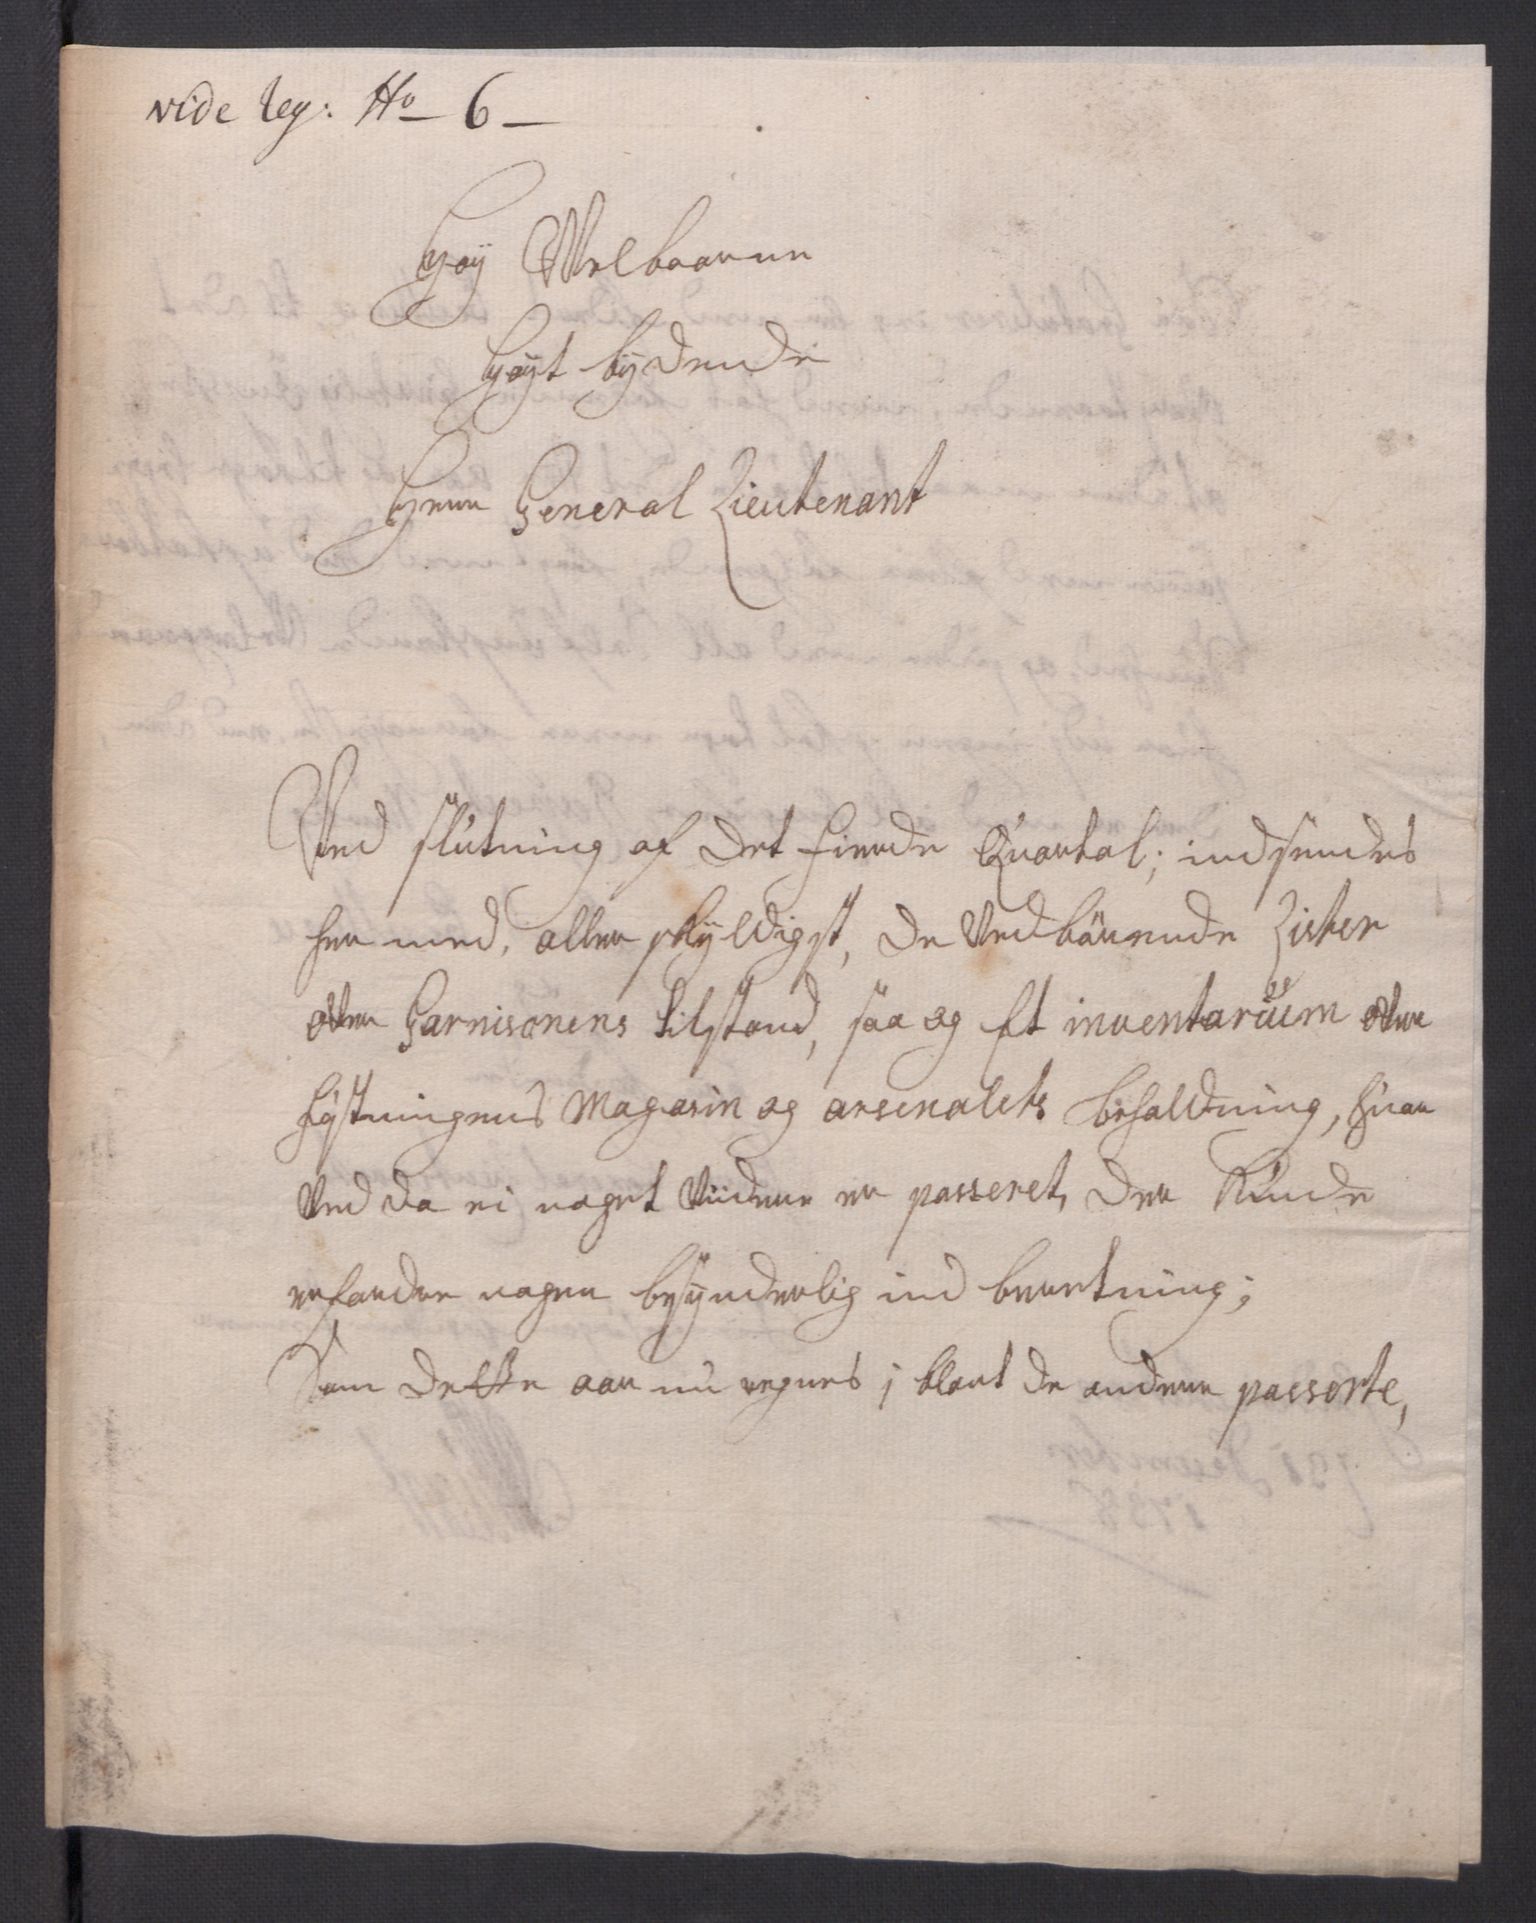 vide leg: No 6
Høy Welbaarne
høyt bydende
Herre General Lieutenant
Ved slutning af det fierde Quartal; indsendes
her med, aller skyldigst, de Vedbörende Lister
over Garnisonens tilstand, saa og Et inventarium over
fæstningens Magasin og arsenalets behaldning, hvor
ved da ei noget Viidere er passeret, der Kunde
erfordre nogen besynderlig ind beretning;
Som dette aar nu regnes i blant de andere passerte,